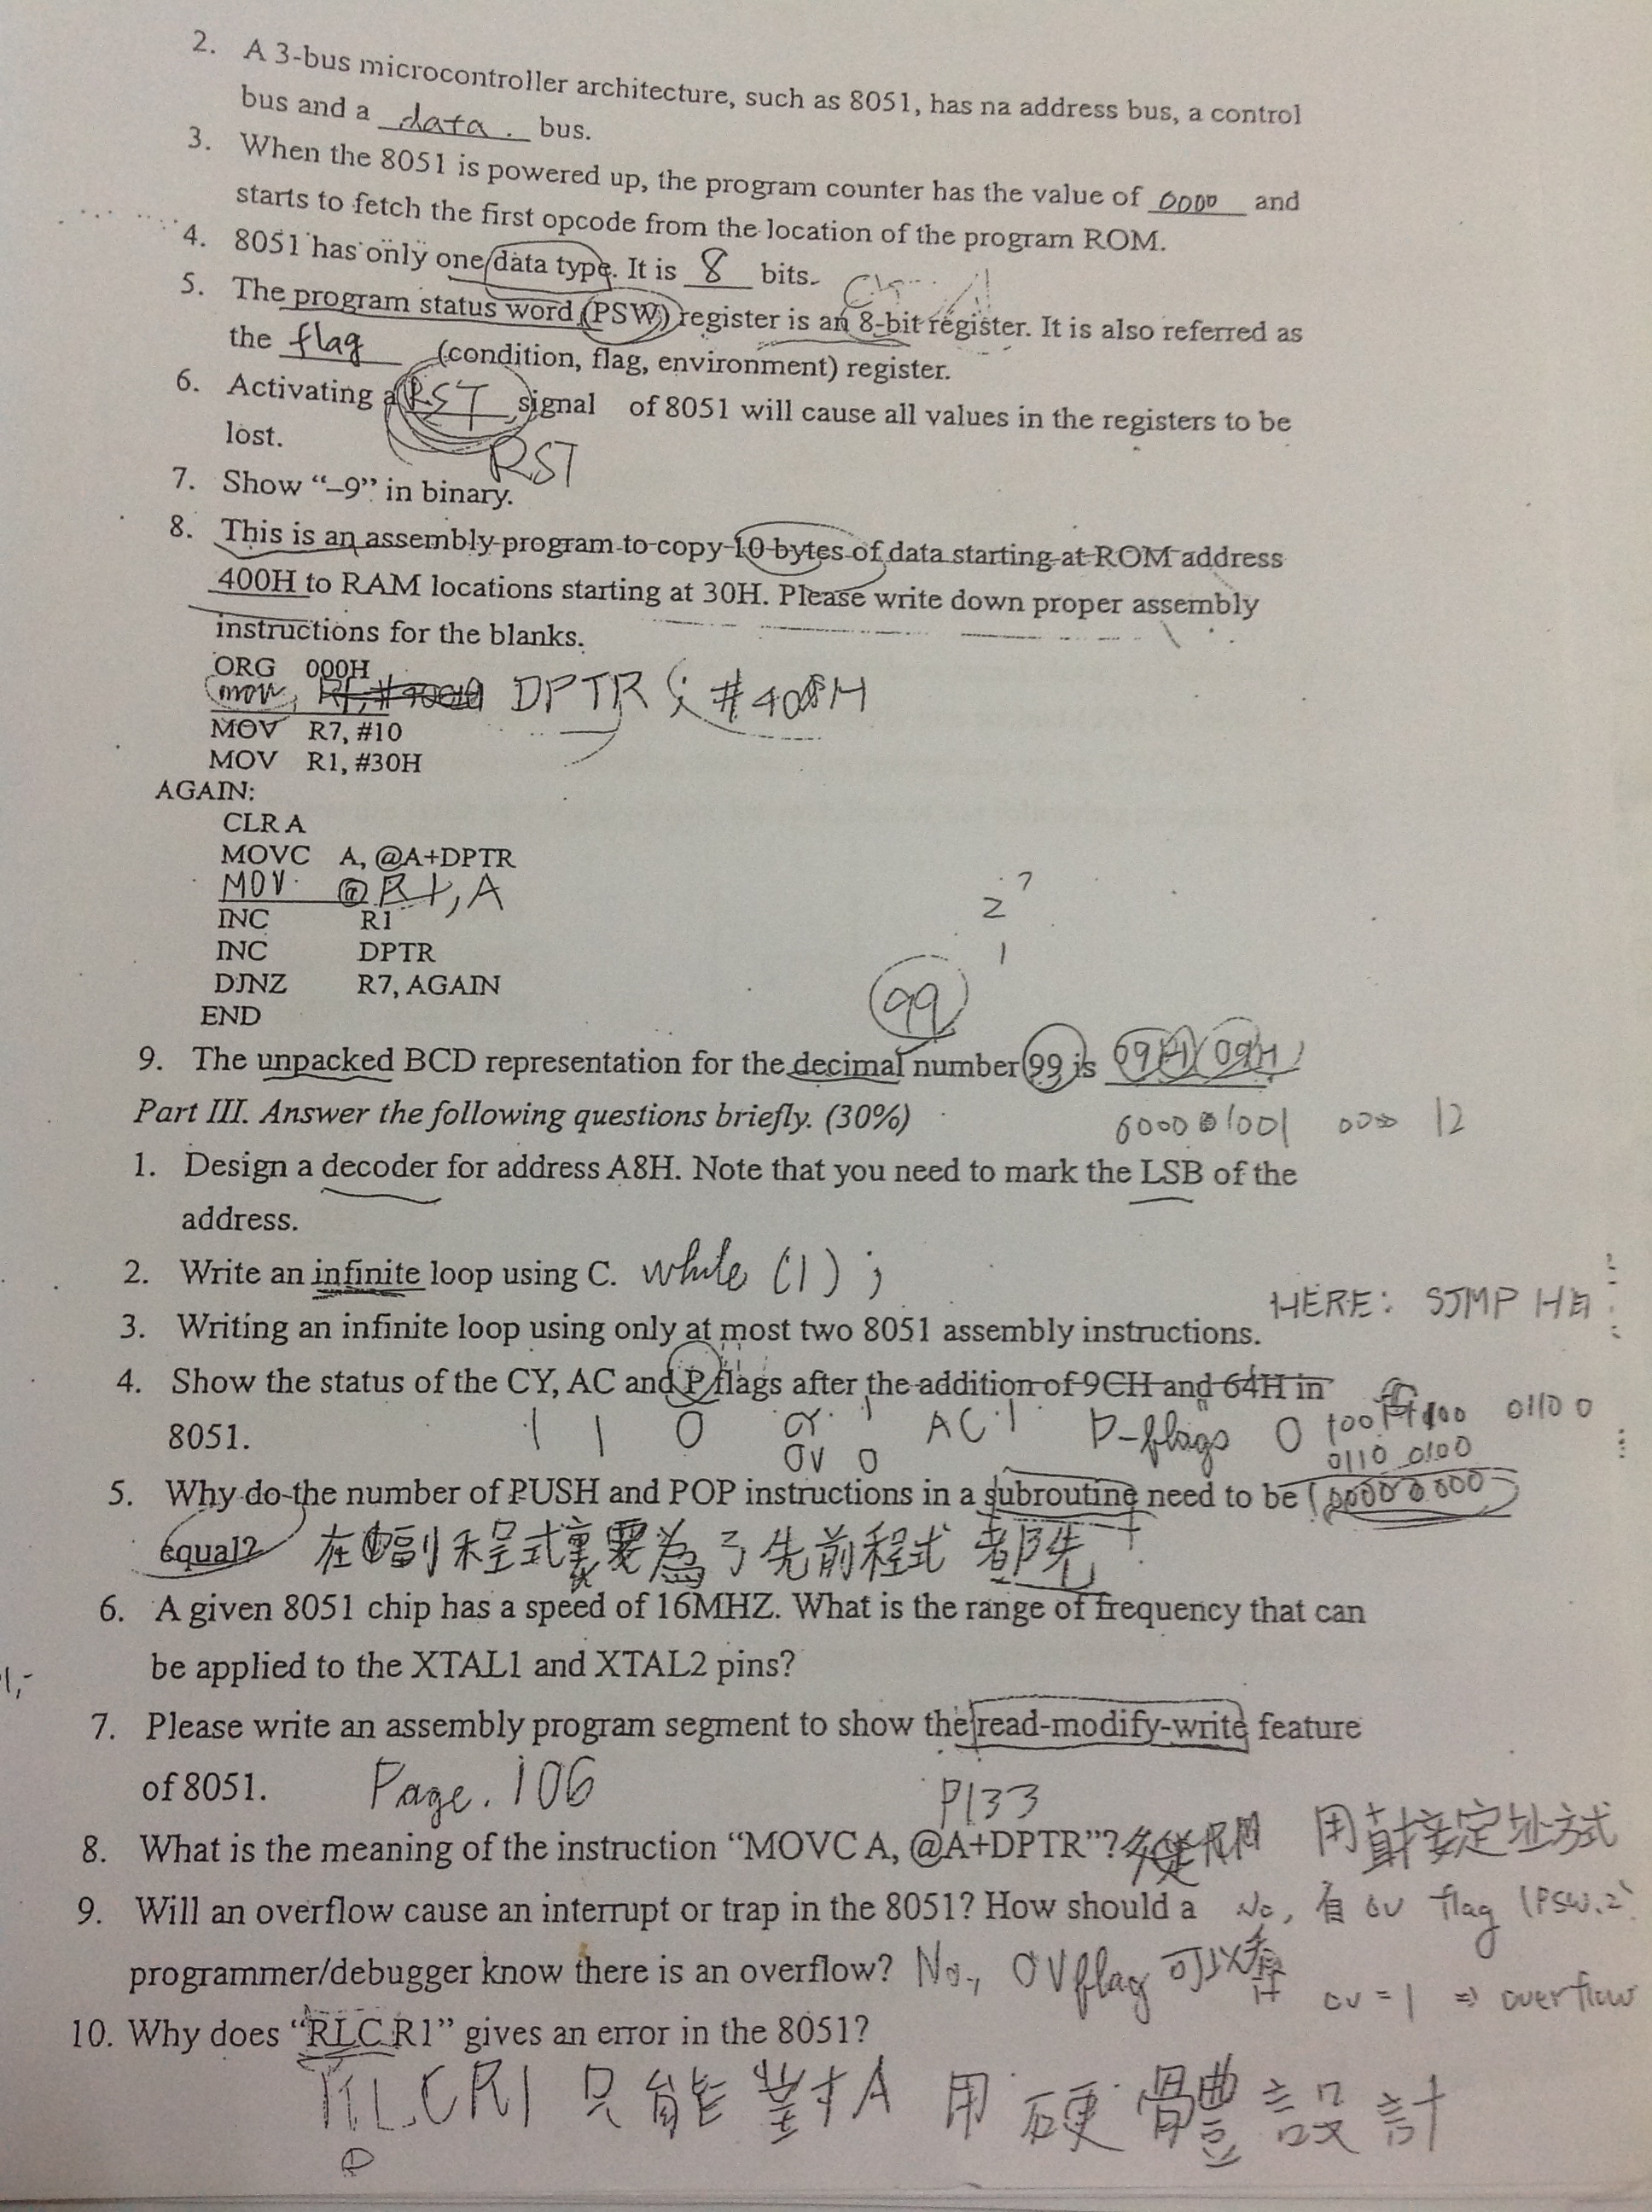 2. A 3-bus microcontroller architecture, such as 8051, has na address bus, a control
bus and a data. bus.
3. When the 8051 is powered up, the program counter has the value of 0000 and
starts to fetch the first opcode from the location of the program ROM.
4. 8051 has only one data type. It is 8 bits.
5. The program status word (PSW) register is an 8-bit register. It is also referred as
the flag (condition, flag, environment) register.
6. Activating a RST signal of 8051 will cause all values in the registers to be
lost.
RST
7. Show “–9” in binary.
8. This is an assembly program to copy 10 bytes of data starting at ROM address
400H to RAM locations starting at 30H. Please write down proper assembly
instructions for the blanks.
ORG 000H
mov, DPTR, #400H
MOV R7, #10
MOV R1, #30H
AGAIN:
CLR A
MOVC A, @A+DPTR
MOV @R1, A
INC R1
INC DPTR
DJNZ R7, AGAIN
END
2 7
1
99
9. The unpacked BCD representation for the decimal number 99 is 09H 09H
Part III. Answer the following questions briefly. (30%)
12
1. Design a decoder for address A8H. Note that you need to mark the LSB of the
address.
2. Write an infinite loop using C. while (1) ;
HERE: SJMP HE
3. Writing an infinite loop using only at most two 8051 assembly instructions.
4. Show the status of the CY, AC and P flags after the addition of 9CH and 64H in
8051. 1 1 0 CY 1 AC 1 P-flags 0
OV 0 0110 0100
5. Why do the number of PUSH and POP instructions in a subroutine need to be
equal? 在副程式裏要為了先前程式 都先
6. A given 8051 chip has a speed of 16MHZ. What is the range of frequency that can
be applied to the XTAL1 and XTAL2 pins?
7. Please write an assembly program segment to show the read-modify-write feature
of 8051. Page. 106 P133
8. What is the meaning of the instruction “MOVC A, @A+DPTR”? 用直接定址方式
9. Will an overflow cause an interrupt or trap in the 8051? How should a No, 有 OV flag (PSW.2)
programmer/debugger know there is an overflow? No, OV flag 可以看
OV = 1 => overflow
10. Why does “RLC R1” gives an error in the 8051?
RLC R1 只能對A 用硬體設計